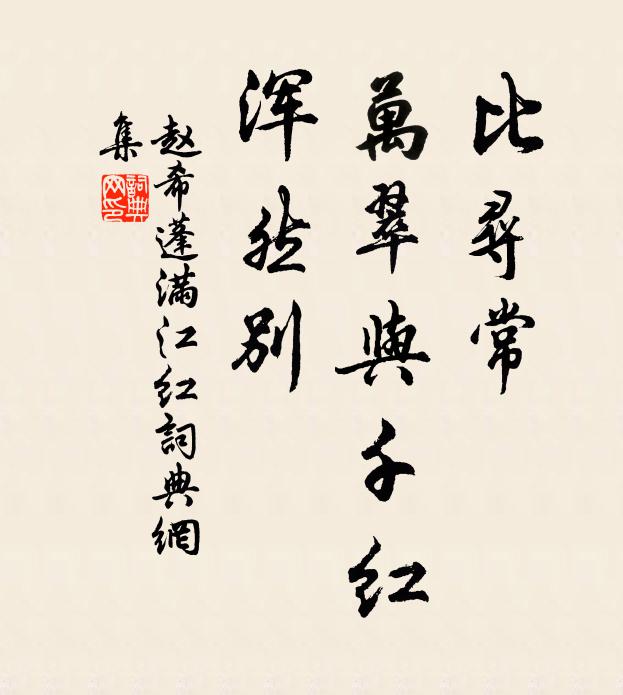 比尋常
萬翠與千红
浑然别
赵希蓬滿江红詞典網
集
詞典网印